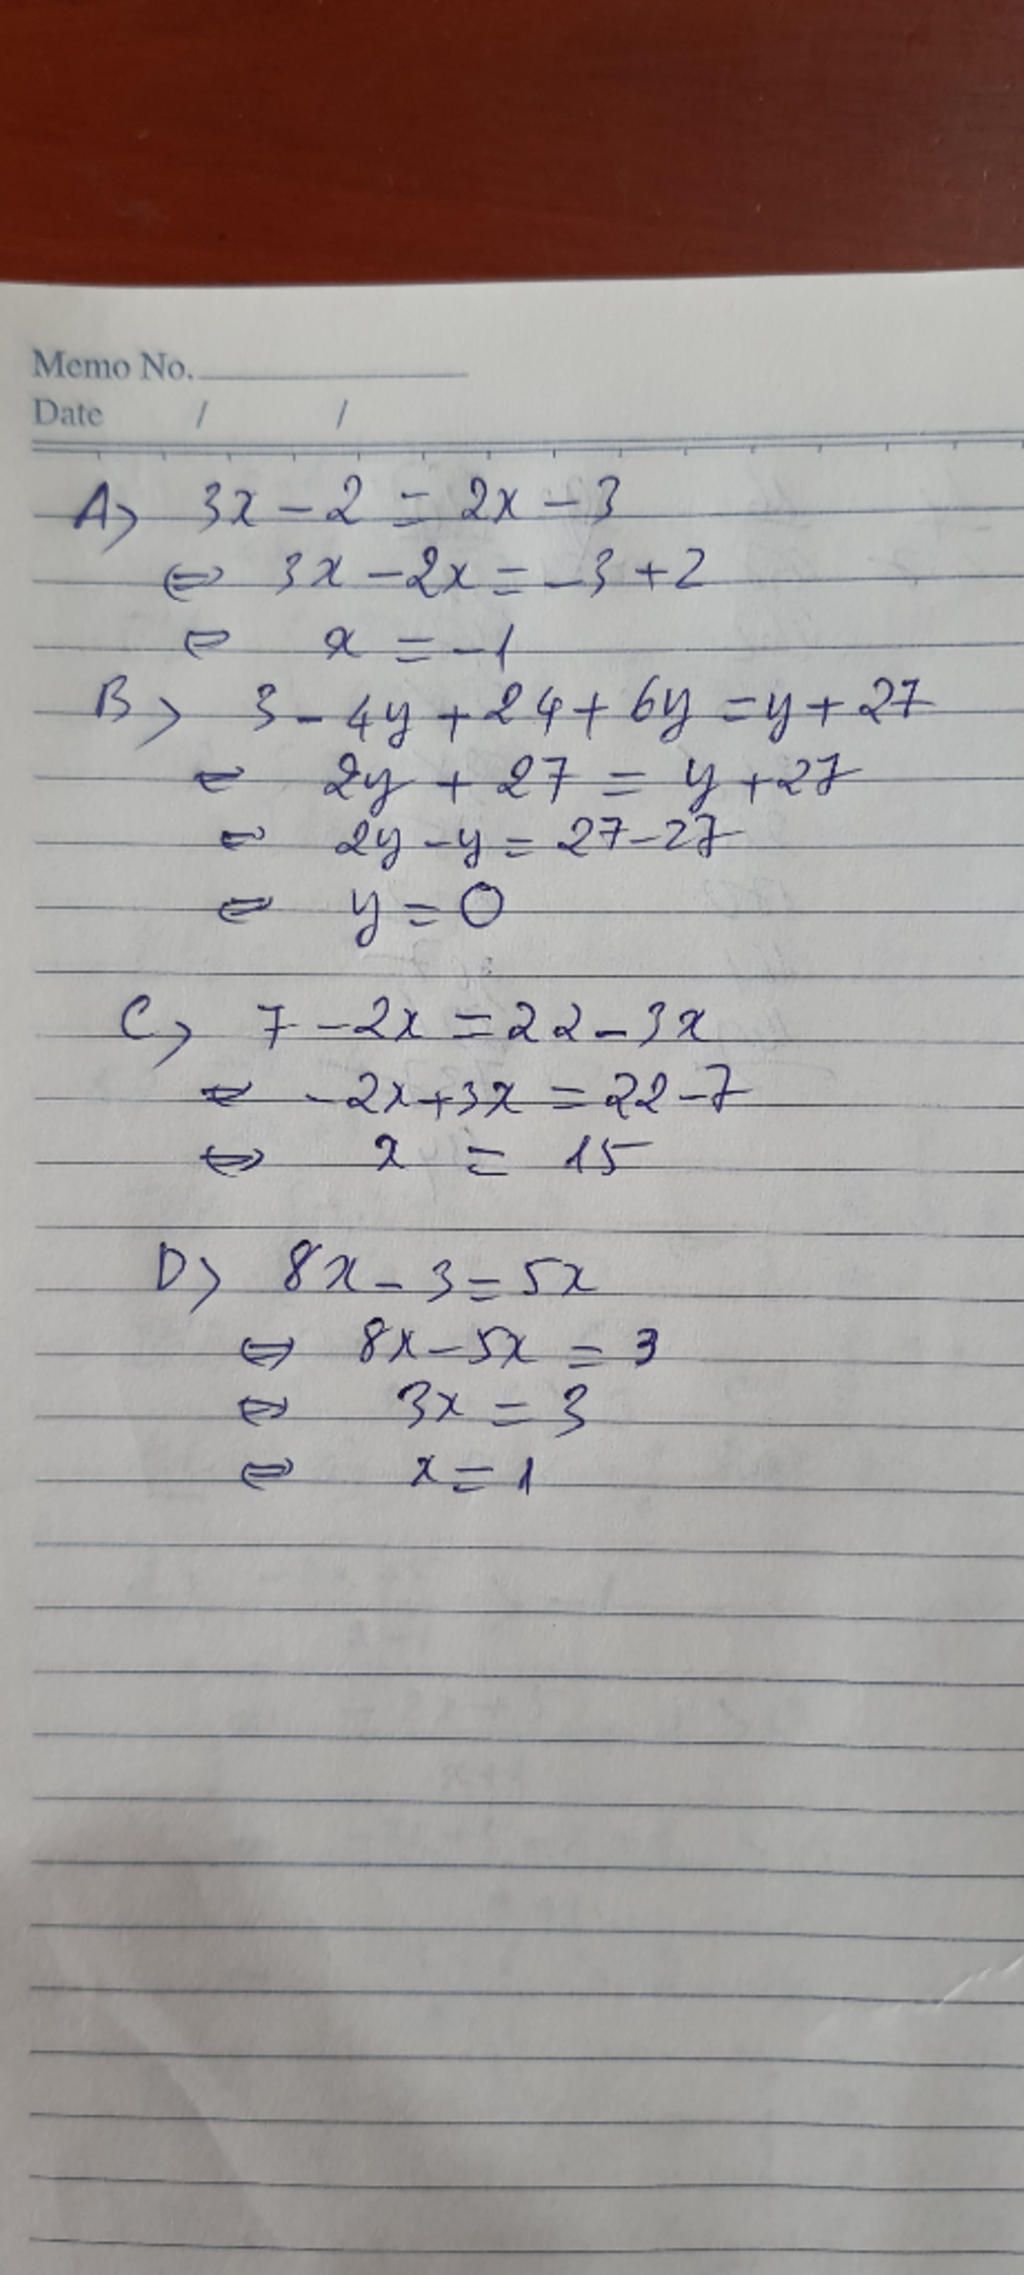 Memo No.
Date / /
A> 3x - 2 = 2x - 3
⇔ 3x - 2x = -3 + 2
⇔ x = -1
B> 3 - 4y + 24 + 6y = y + 27
⇔ 2y + 27 = y + 27
⇔ 2y - y = 27 - 27
⇔ y = 0
C> 7 - 2x = 22 - 3x
⇔ -2x + 3x = 22 - 7
⇔ x = 15
D> 8x - 3 = 5x
⇔ 8x - 5x = 3
⇔ 3x = 3
⇔ x = 1